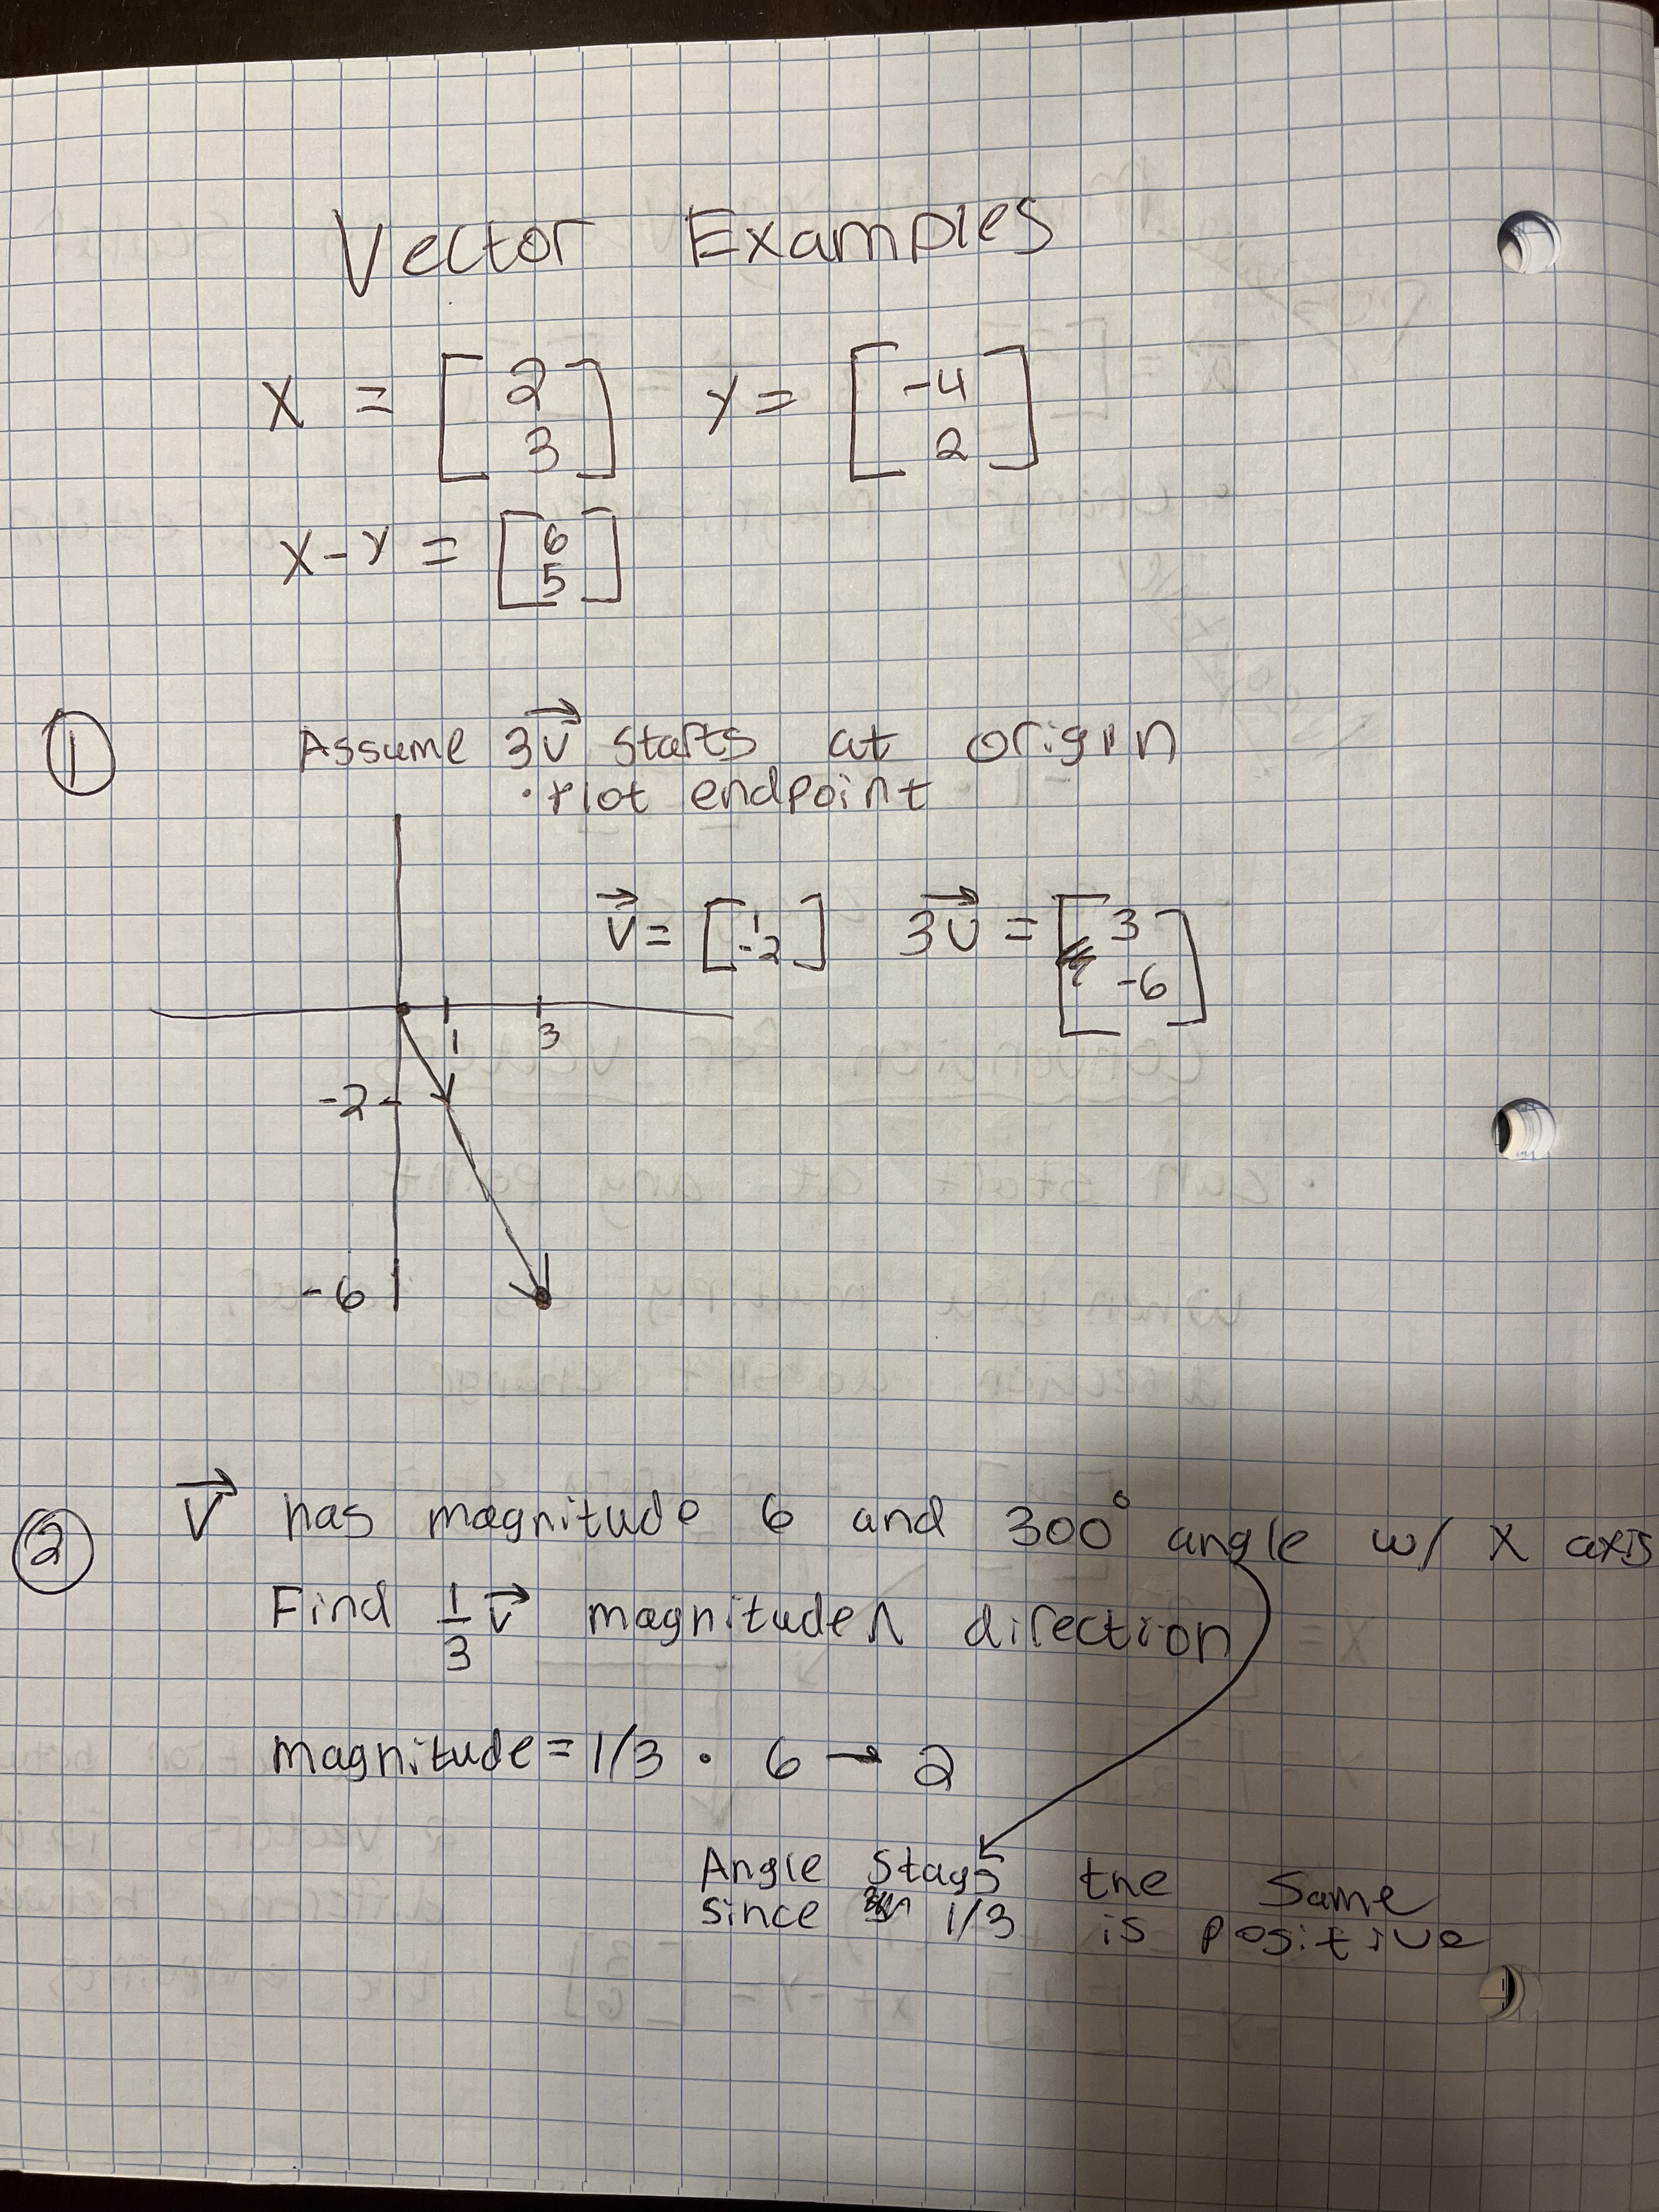 Vector Examples
X = [2 3] Y = [-4 2]
X-Y = [6 5]
① Assume 3v⃗ starts at origin
• Plot endpoint
v⃗ = [1 -2] 3v⃗ = [3 -6]
1 3
-2
-6
② v⃗ has magnitude 6 and 300° angle w/ X axis
Find 1/3 v⃗ magnitude ∧ direction
magnitude = 1/3 · 6 → 2
Angle Stays the Same
since 1/3 is positive